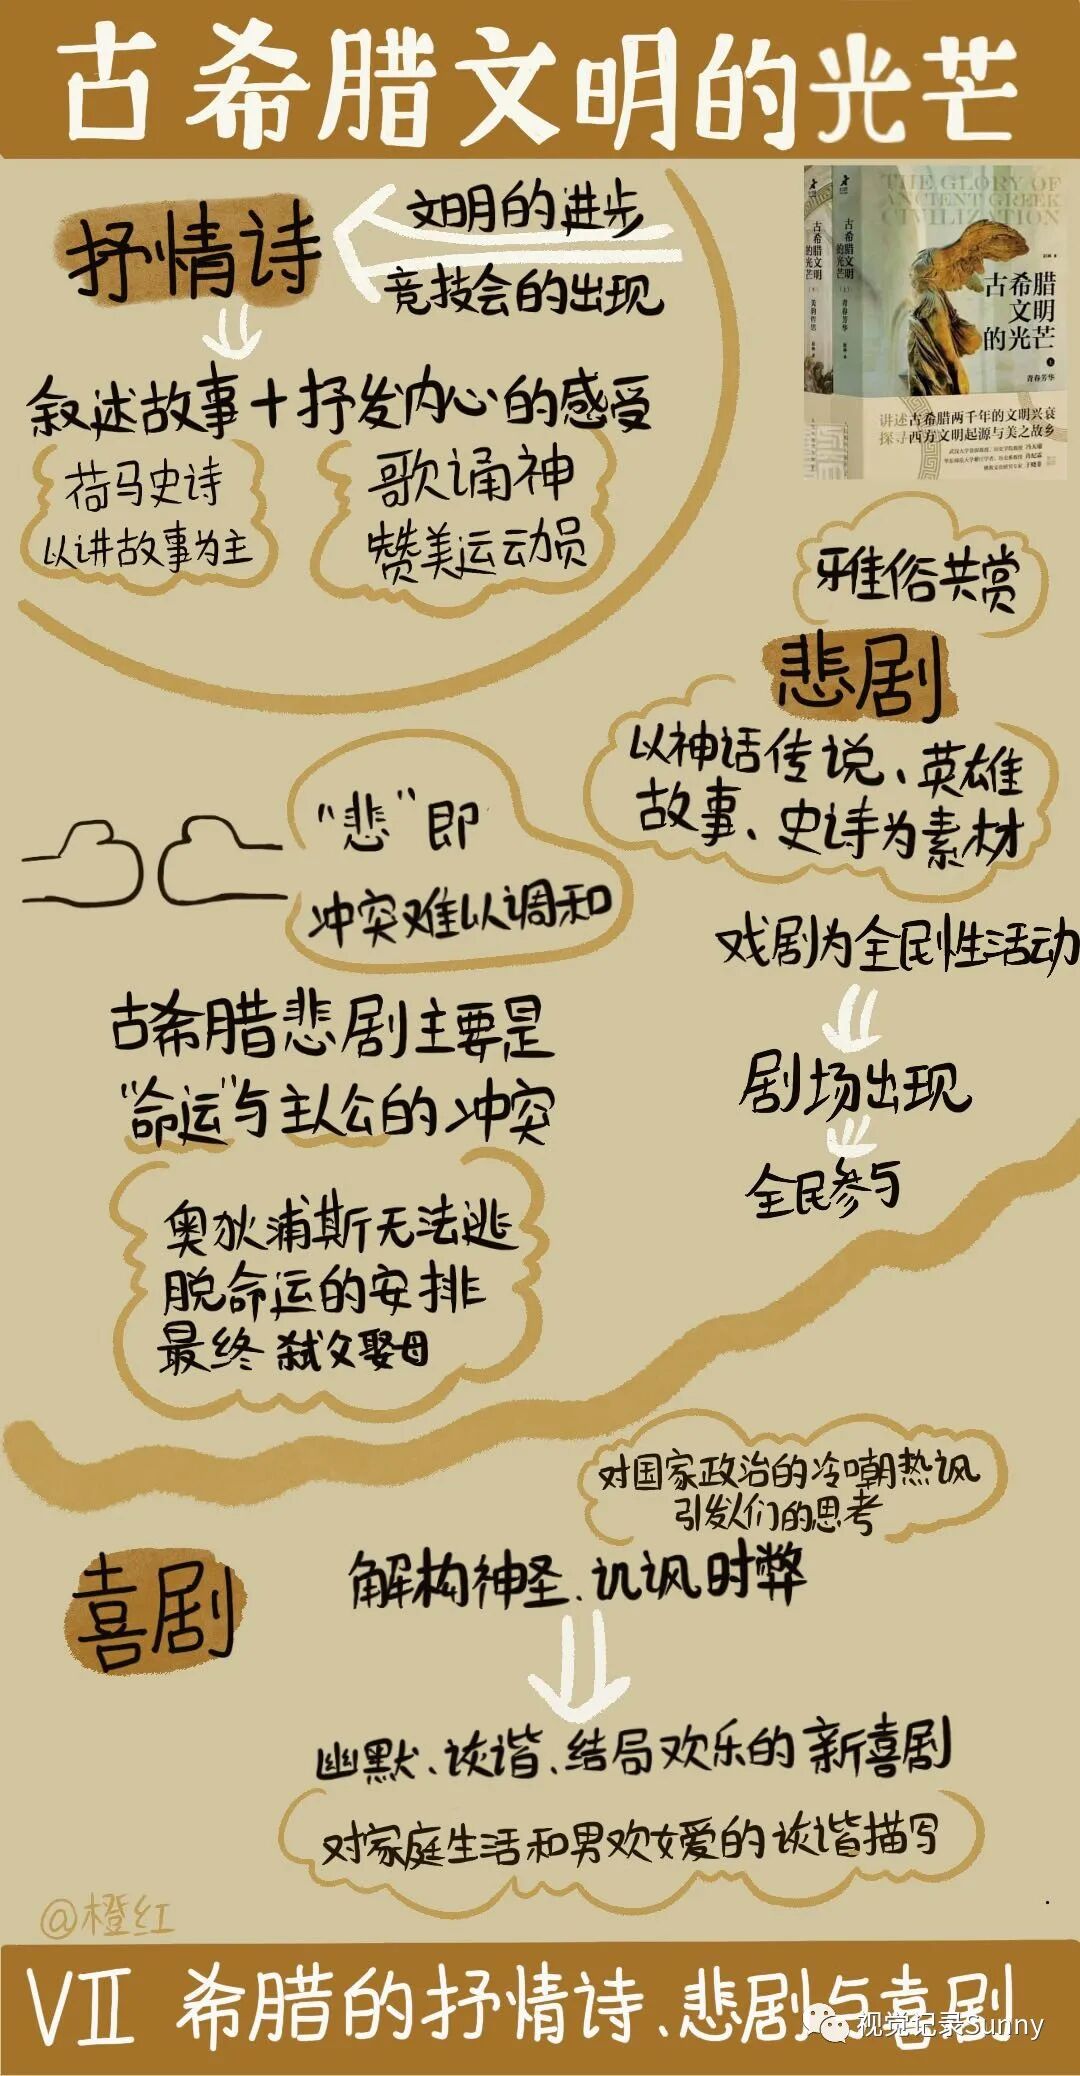 古希腊文明的光芒
抒情诗
文明的进步
竞技会的出现
叙述故事+抒发内心的感受
荷马史诗
以讲故事为主
歌诵神
赞美运动员
THE GLORY OF
ANCIENT GREEK
CIVILIZATION
古希腊
文明
的光芒
上
青春芳华
古希腊文明的光芒
(上)
青春芳华
古希腊文明的光芒
讲述古希腊两千年的文明兴衰
探寻西方文明起源与美之故乡
雅俗共赏
悲剧
以神话传说、英雄
故事、史诗为素材
戏剧为全民性活动
剧场出现
全民参与
“悲”即
冲突难以调和
古希腊悲剧主要是
“命运”与主人公的冲突
奥狄浦斯无法逃
脱命运的安排
最终弑父娶母
对国家政治的冷嘲热讽
引发人们的思考
喜剧
解构神圣、讥讽时弊
幽默、诙谐、结局欢乐的新喜剧
对家庭生活和男欢女爱的诙谐描写
@橙红
VII 希腊的抒情诗、悲剧与喜剧
视觉记录Sunny